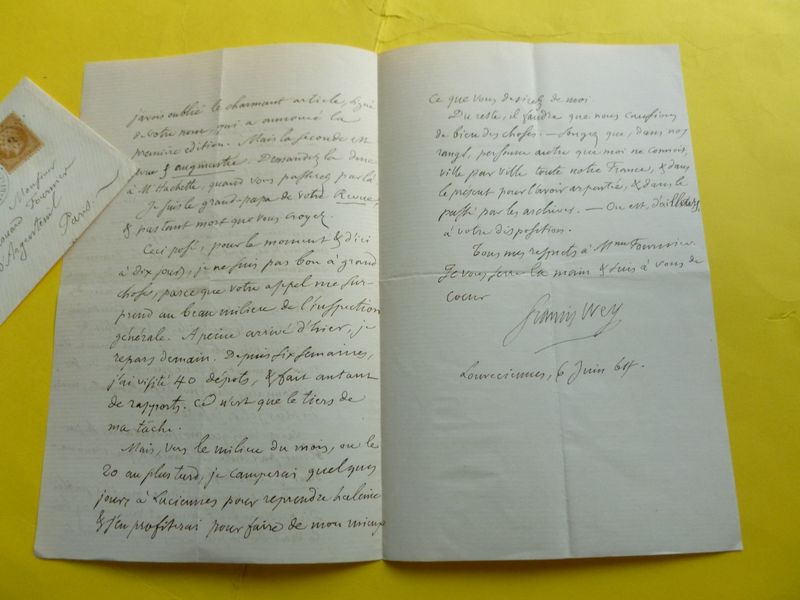 Monsieur
Edouard Fournier
d'Argenteuil
Paris.
j'avois oublié le charmant article, signé
de votre nom, qui a annoncé la
première édition. Mais la seconde est
revue & augmentée. Demandez la donc
à Mr Hachette, quand vous passerez par là.
Je suis le grand-papa de votre Revue,
& pas tant mort que vous croyez.
Ceci posé, pour le moment & d'ici
à dix jours, je ne suis pas bon à grand
chose, parce que votre appel me sur-
prend au beau milieu de l'inspection
générale. A peine arrivé d'hier, je
repars demain. Depuis six semaines,
j'ai visité 40 dépots, & fait autant
de rapports. Ce n'est que le tiers de
ma tâche.
Mais, vers le milieu du mois, ou le
20 au plus tard, je camperai quelques
jours à Luciennes pour reprendre haleine
& j'en profiterai pour faire de mon mieux
ce que vous desirez de moi.
Du reste, il faudra que nous causions
de bien des choses. — Songez que, dans nos
rangs, personne autre que moi ne connoit,
ville par ville toute notre France, & dans
le présent pour l'avoir arpentée, & dans le
passé par les archives. — On est, d'ailleurs,
à votre disposition.
Tous mes respects à Mme Fournier.
Je vous serre la main & suis à vous de
coeur
Francis Wey
Louveciennes, 6 Juin